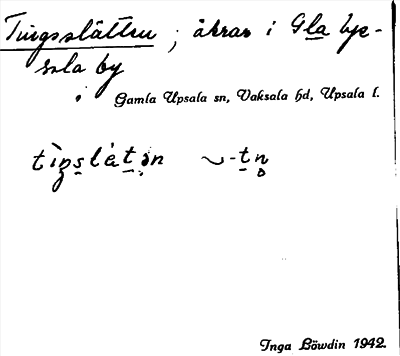 Tingsslätten ; åkrar i Gla Upp-
sala by
i Gamla Upsala sn, Vaksala hd, Upsala l.
tìŋslǻtən ~-tn̥
Inga Löwdin 1942.